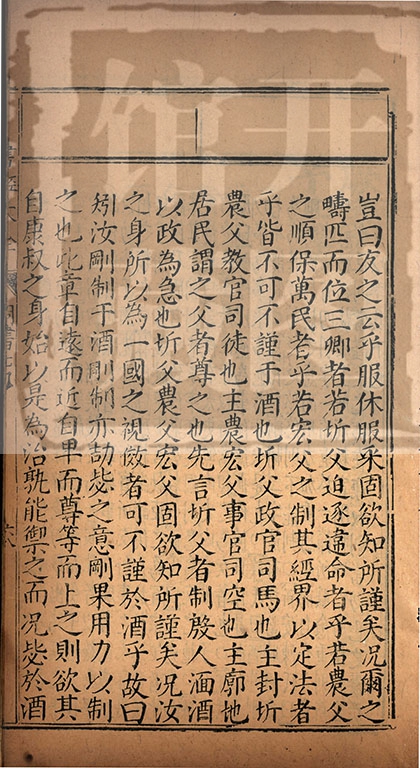 豈曰友之云乎服休服采固欲知所謹矣况爾之
疇匹而位三卿者若圻父迫逐違命者乎若農父
之順保萬民者乎若宏父之制其經界以定法者
乎皆不可不謹于酒也圻父政官司馬也主封圻
農父教官司徒也主農宏父事官司空也主廓地
居民謂之父者尊之也先言圻父者制殷人湎酒
以政為急也圻父農父宏父固欲知所謹矣况汝
之身所以為一國之視傚者可不謹於酒乎故曰
矧汝剛制于酒剛制亦劼毖之意剛果用力以制
之也此章自遠而近自卑而尊等而上之則欲其
自康叔之身始以是為治孰能禦之而况毖於酒
書經大全
開
館